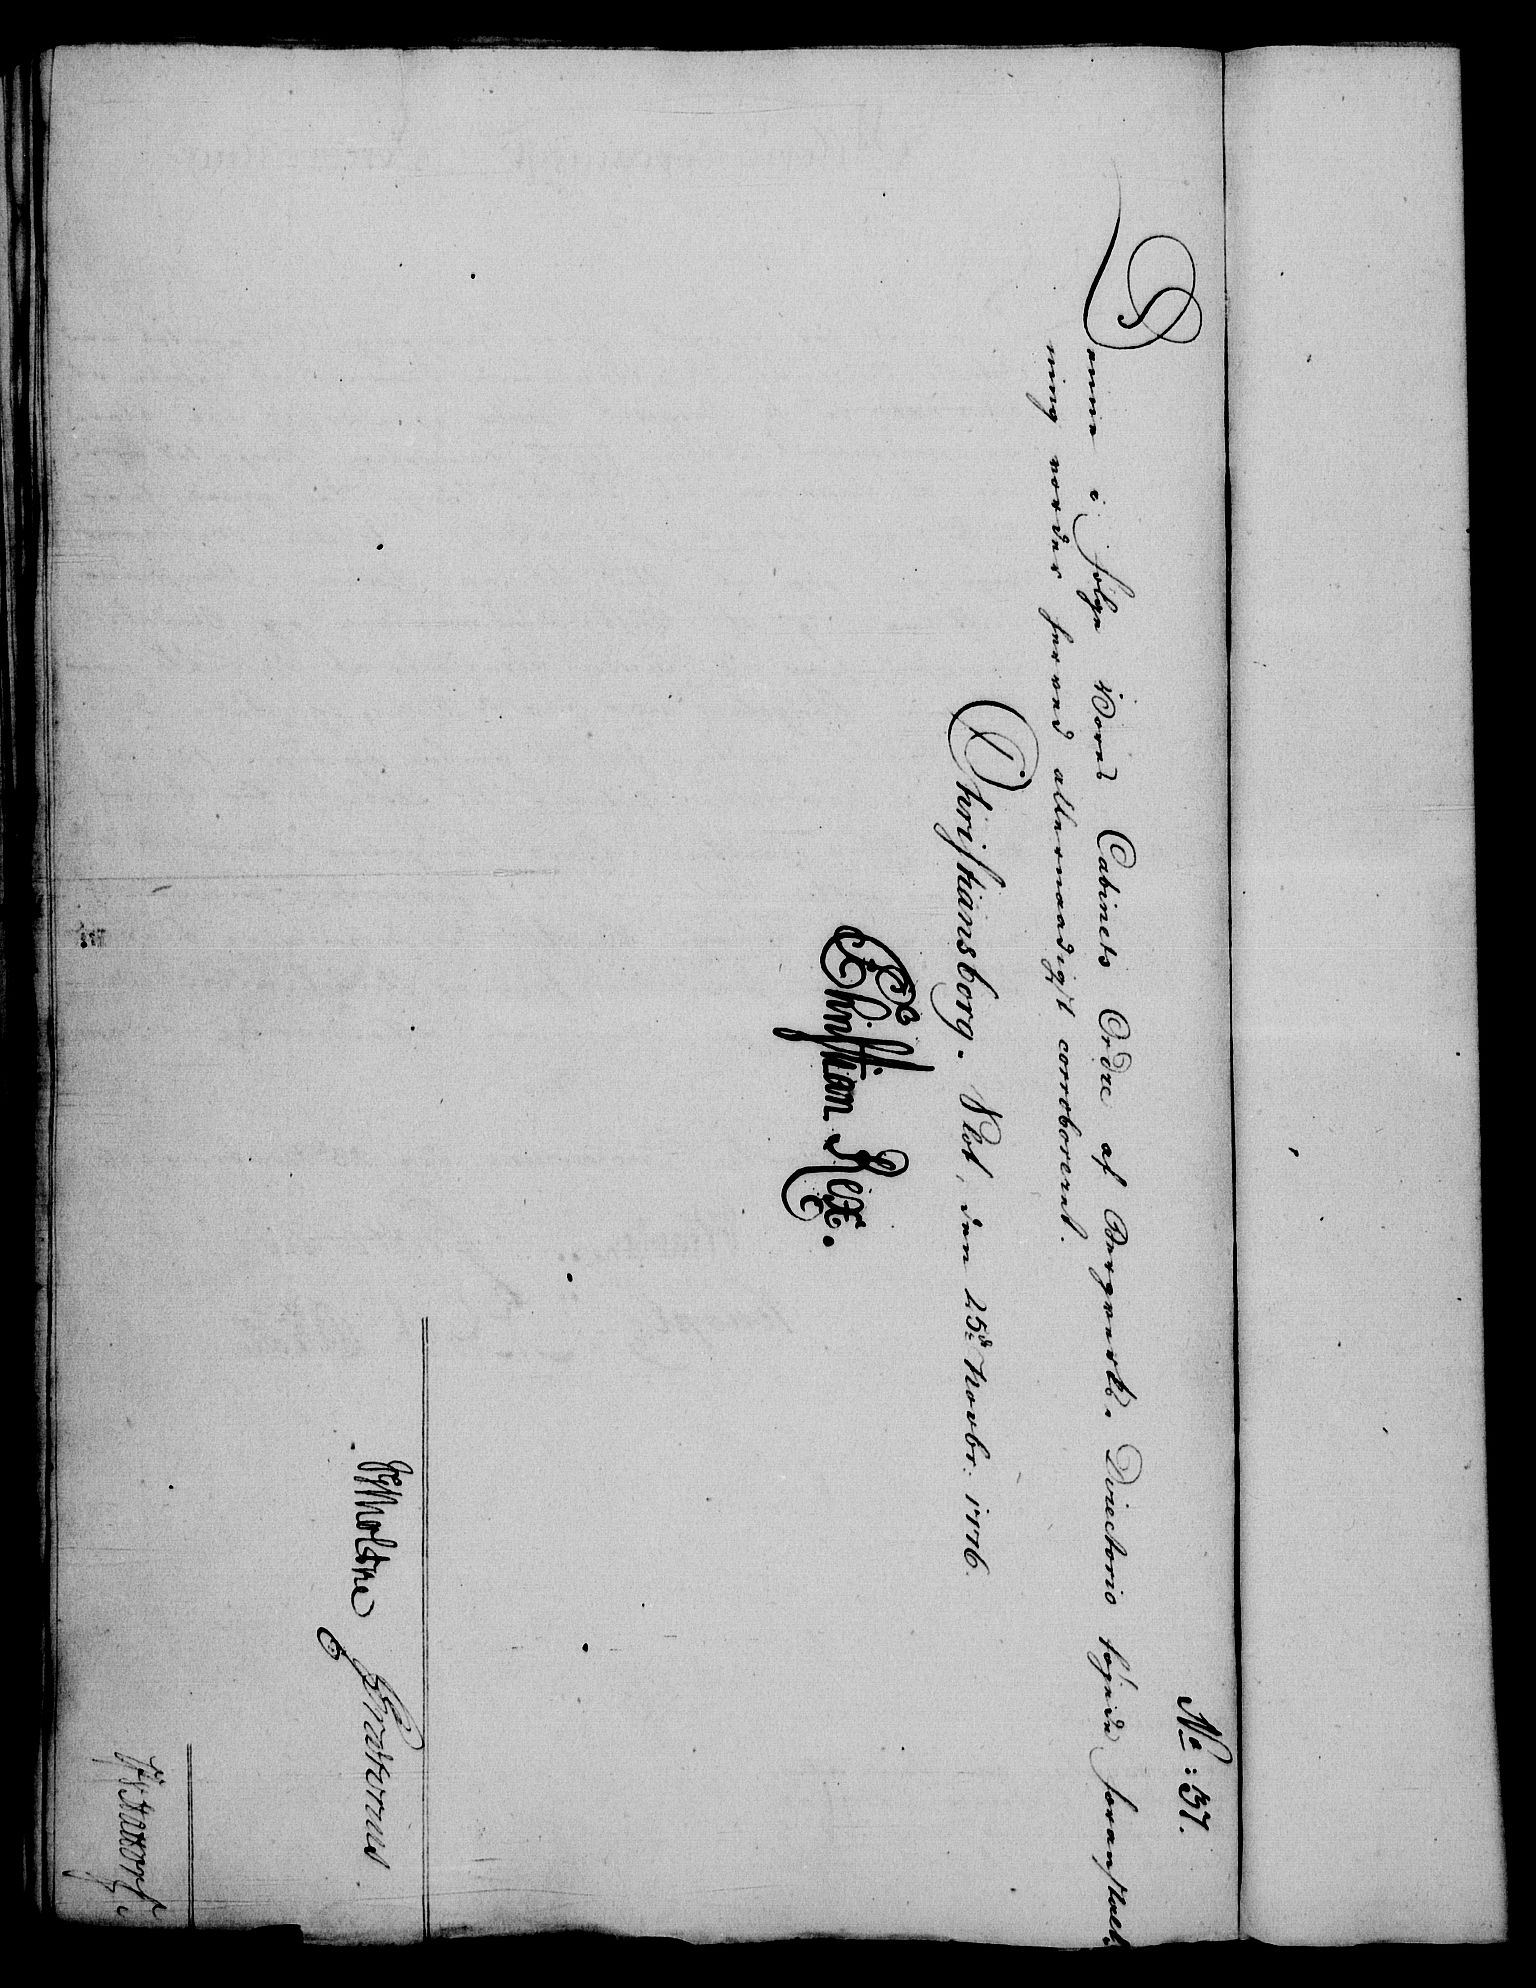 No: 37.
Denne i følge Vores Cabinets Ordre af Bergverks Directorio føyede Foranstalt-
ning vorder herved allernaadigst corroboreret.
Christiansborg Slot, den 25de Novbr: 1776.
Christian Rex.